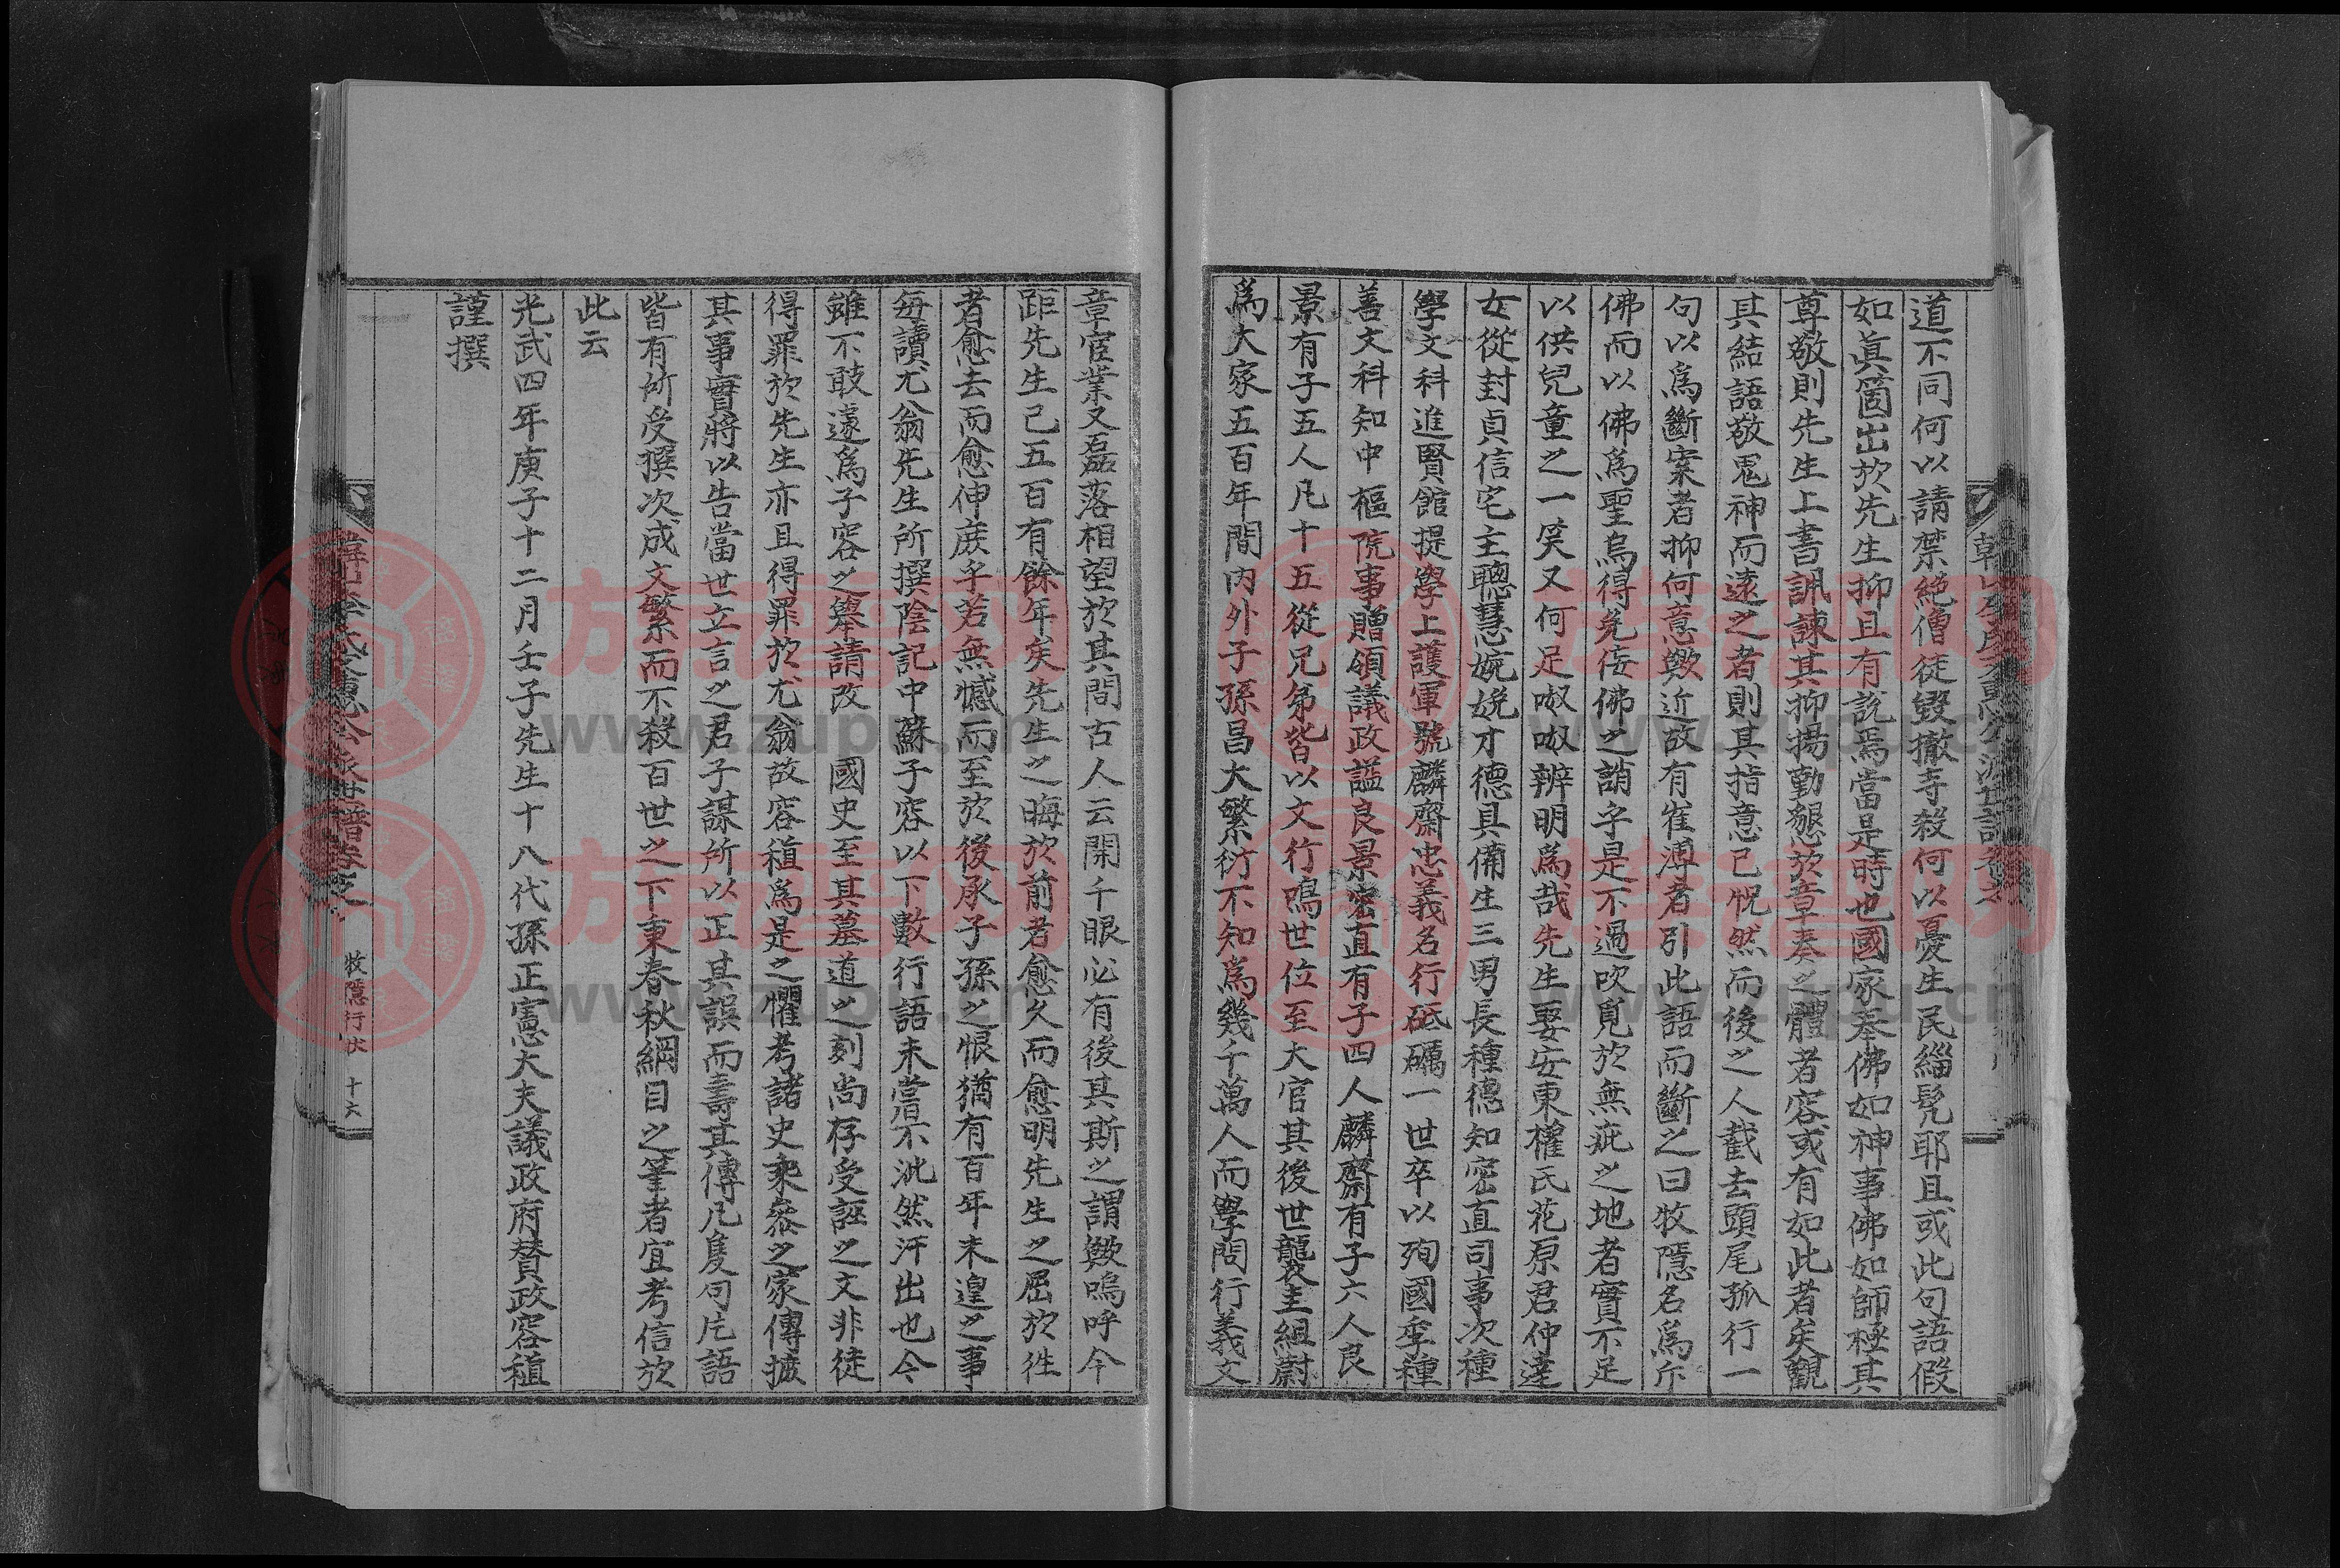 道不同何以請禁絶僧徒毀撤寺殺何以憂生民緇髡耶且或此句語假
如眞箇出於先生抑且有說焉當是時也國家奉佛如神事佛如師極其
尊敬則先生上書訊諫其抑揚勤懇於章奏之體者容或有如此者矣觀
其結語敬鬼神而遠之者則其指意已怳然而後之人截去頭尾孤行一
句以爲斷案者抑何意歟近故有崔溥者引此語而斷之曰牧隱名爲斥
佛而以佛爲聖烏得免侫佛之誚乎是不過吹覓於無疵之地者實不足
以供兒童之一笑又何足呶呶辨明爲哉先生娶安東權氏花原君仲達
女從封貞信宅主聰慧婉娩才德具備生三男長種德知密直司事次種
學文科進賢館提學上護軍號麟齋忠義名行砥礪一世卒以殉國季種
善文科知中樞院事贈領議政謚良景密直有子四人麟齋有子六人良
景有子五人凡十五從兄弟皆以文行鳴世位至大官其後世襲圭組蔚
爲大家五百年間內外子孫昌大繁衍不知爲幾千萬人而學問行義文
章宦業又磊落相望於其間古人云開千眼必有後其斯之謂歟嗚呼今
距先生已五百有餘年矣先生之晦於前者愈久而愈明先生之屈於徃
者愈去而愈伸庶乎若無憾而至於後承子孫之恨猶有百年未遑之事
每讀尤翁先生所撰陰記中蘇子容以下數行語未嘗不泚然汗出也今
雖不敢遽爲子容之擧請改 國史至其墓道之刻尙存受誣之文非徒
得罪於先生亦且得罪於尤翁故容稙爲是之懼考諸史乘叅之家傳摭
其事實將以告當世立言之君子謀所以正其誤而壽其傳凡隻句片語
皆有所受撰次成文繁而不殺百世之下秉春秋綱目之筆者宜考信於
此云
光武四年庚子十二月壬子先生十八代孫正憲大夫議政府贊政容稙
謹撰
牧隱行狀 十六
族譜网
www.zupu.cn